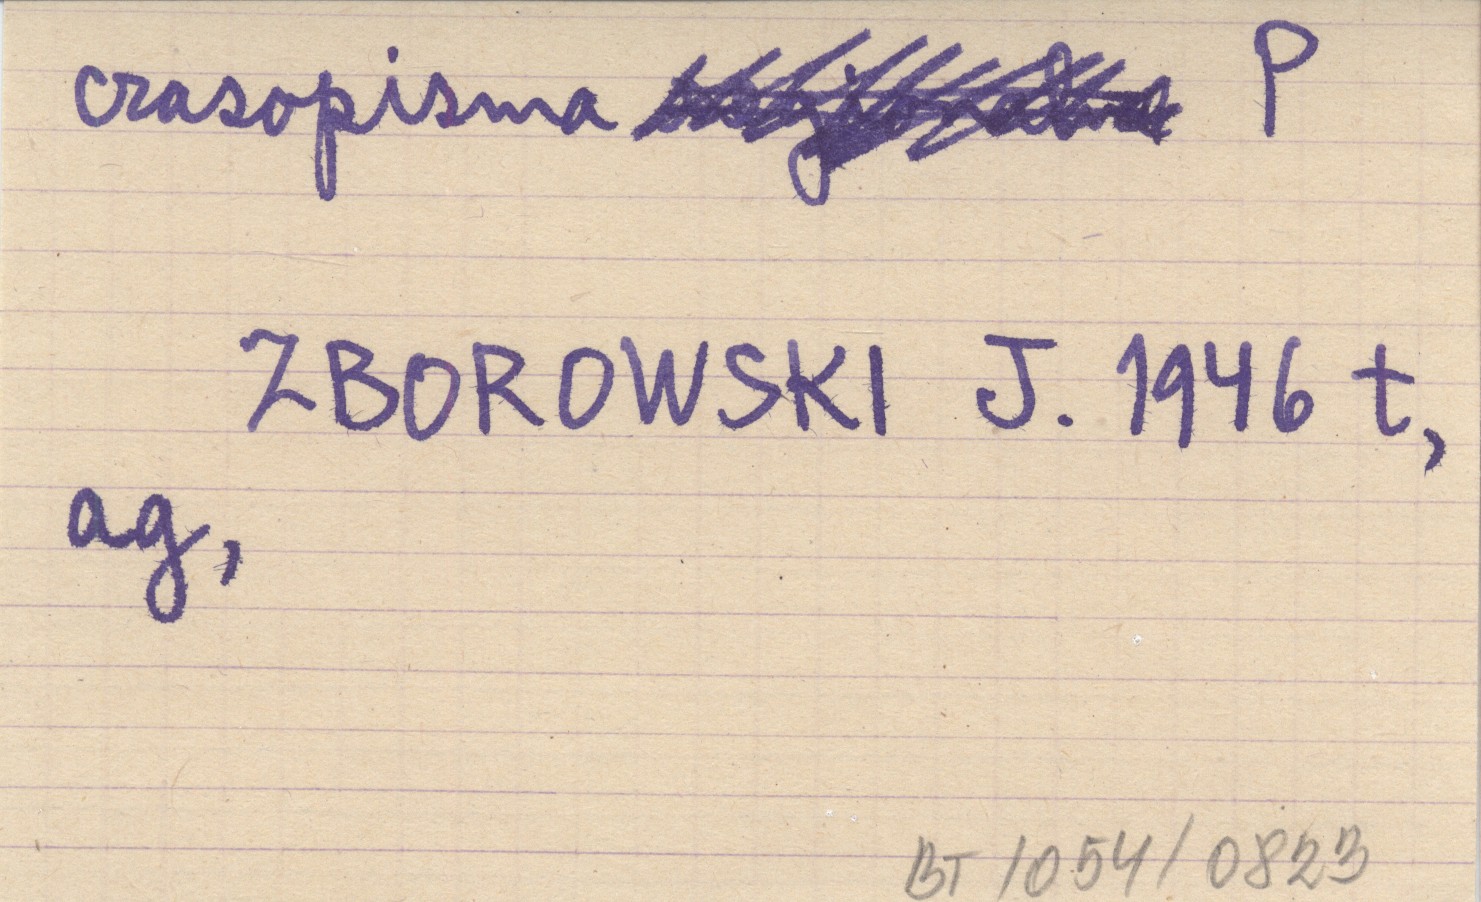 czasopisma P
ZBOROWSKI J. 1946 t,
ag,
BT 1054/0823